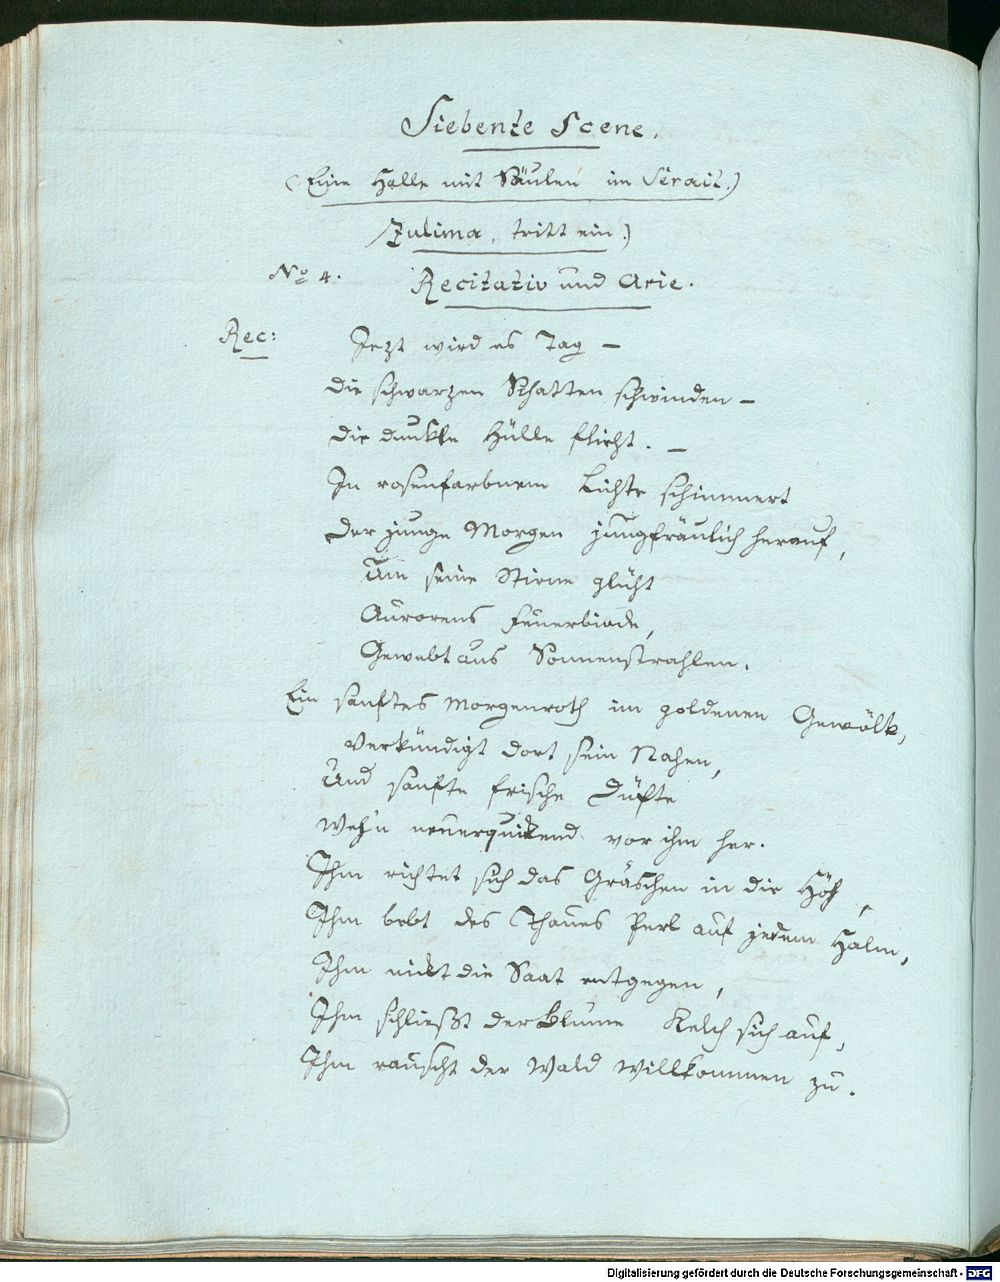 Siebente Scene.
(Eine Halle mit Säulen im Serail.)
Zulima, tritt ein.)
No 4. Recitativ und Arie.
Rec: Jezt wird es Tag –
Die schwarzen Schatten schwinden –
Die dunkle Hülle flieht. –
In rosenfarbnem Lichte schimmert
Der junge Morgen jungfräulich herauf,
Um seine Stirne glüht
Aurorens Feuerbinde,
Gewebt aus Sonnenstrahlen.
Ein sanftes Morgenroth im goldenen Gewölk,
Verkündigt dort sein Nahen,
Und sanfte frische Düfte
Weh'n neuerquikend vor ihm her.
Ihm richtet sich das Gräschen in die Höh,
Ihm bebt des Thaues Perl auf jedem Halm,
Ihm nickt die Saat entgegen,
Ihm schließt der Blume Kelch sich auf,
Ihm rauscht der Wald Willkommen zu.
Digitalisierung gefördert durch die Deutsche Forschungsgemeinschaft - DFG